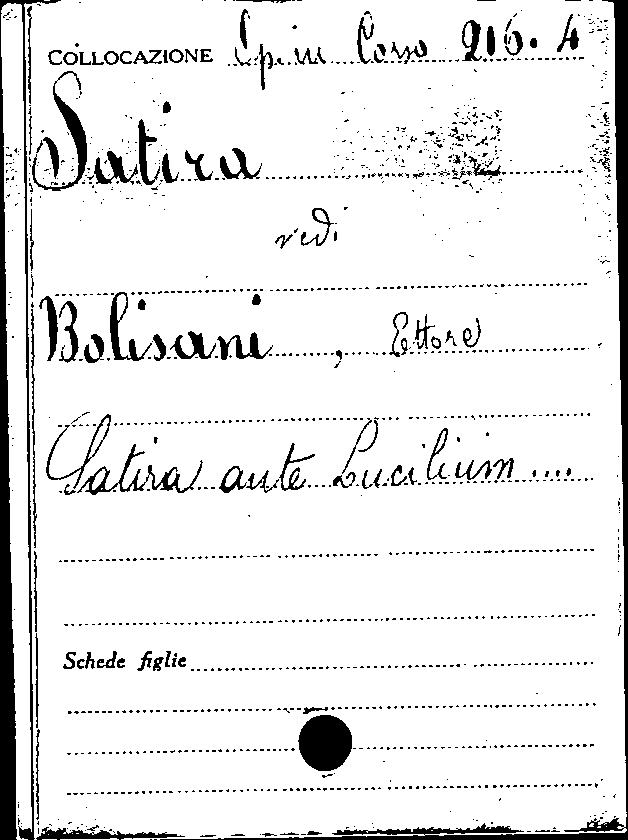 COLLOCAZIONE Op. in Corso 216. 4
Satira
vedi
Bolisani, Ettore
Satira ante Lucilium ....
Schede figlie